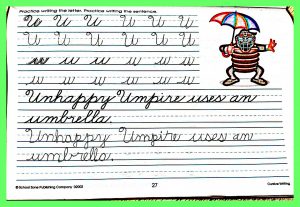 Practice writing the letter. Practice writing the sentence.
U U U U U U U
U U U U U U
u u u u u u u
u u u u u u
Unhappy Umpire uses an
umbrella.
Unhappy Umpire uses an
umbrella.
© School Zone Publishing Company
27
Cursive Writing